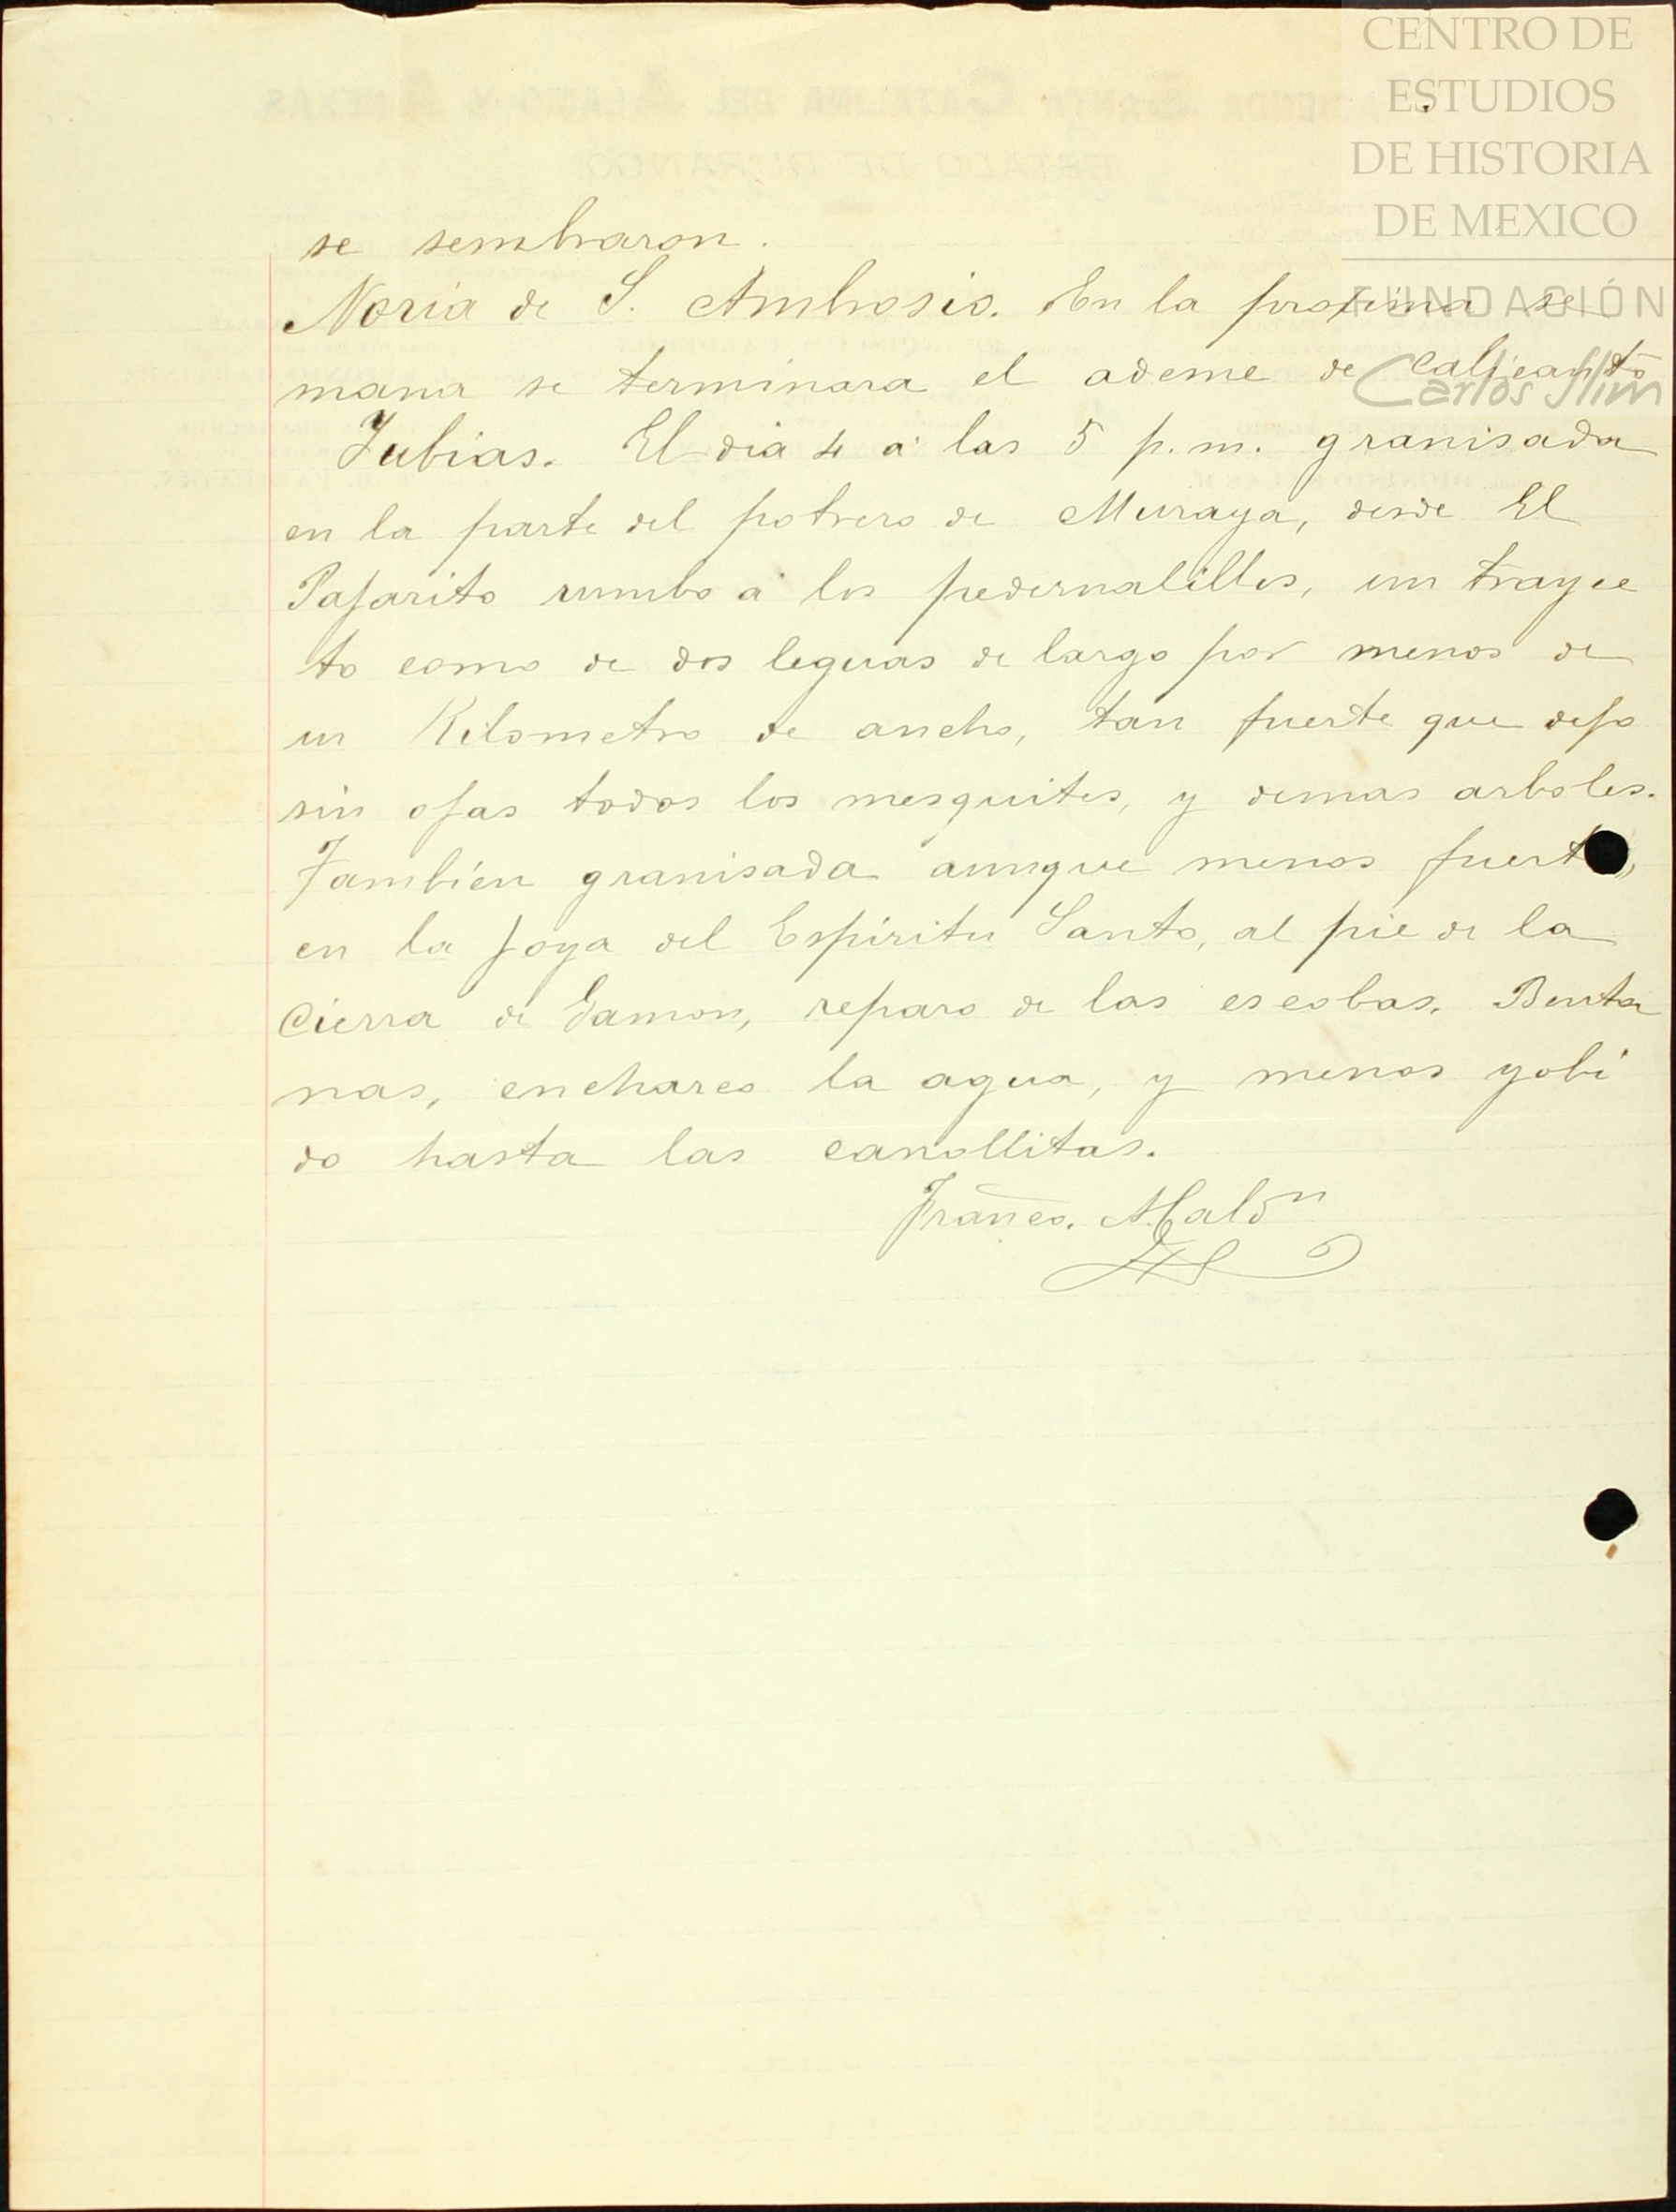 CENTRO DE
ESTUDIOS
DE HISTORIA
DE MEXICO
FUNDACIÓN
Carlos Slim
ESTADO DE DURANGO
se sembraron.
Noria de S. Ambrosio. En la proxima se
mana se terminara el ademe de calicanto
Jubias. El dia 4 á las 5 p.m. granisada
en la parte del potrero de Muraya, desde El
Pajarito rumbo á los pedernalillos, un trayec
to como de dos leguas de largo por menos de
un Kilometro de ancho, tan fuerte que dejo
sin ojas todos los mesquites, y demas arboles.
Tambien granisada aunque menos fuerte,
en la joya del Espiritu Santo, al pie de la
Cierra de Gamon, reparo de las escobas. Benta
nas, encharco la agua, y menos yobi
do hasta las canollitas.
Franco. Maldn